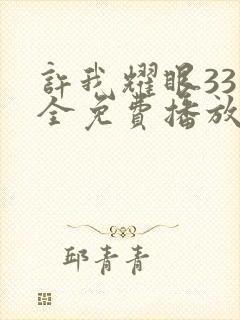 許我耀眼33
全免費播放
邱青青